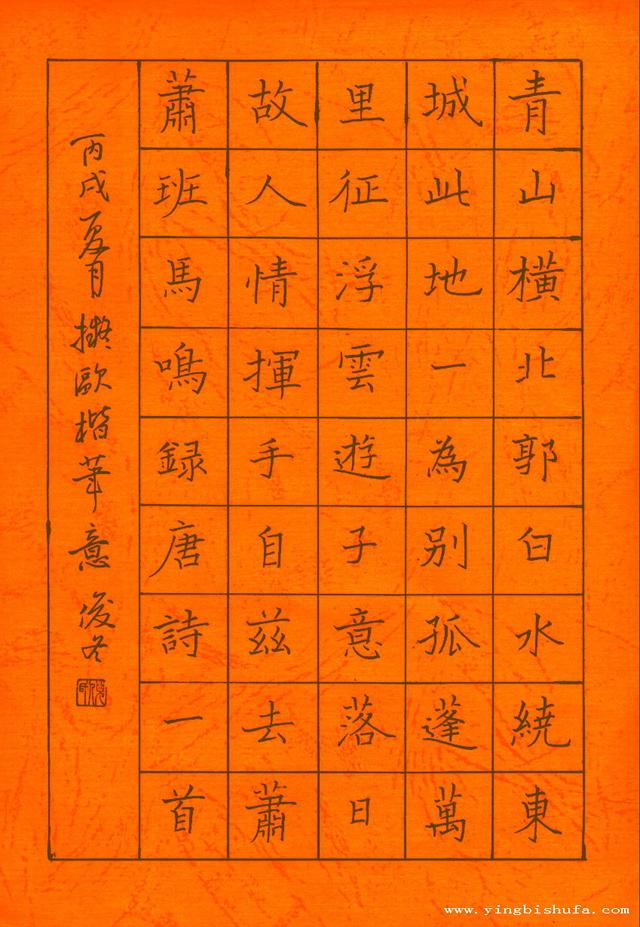 青山橫北郭白水繞東
城此地一為别孤蓬萬
里征浮雲遊子意落日
故人情揮手自兹去蕭
蕭班馬鳴録唐詩一首
丙戌夏月擬歐楷筆意俊冬
www.yingbishufa.com